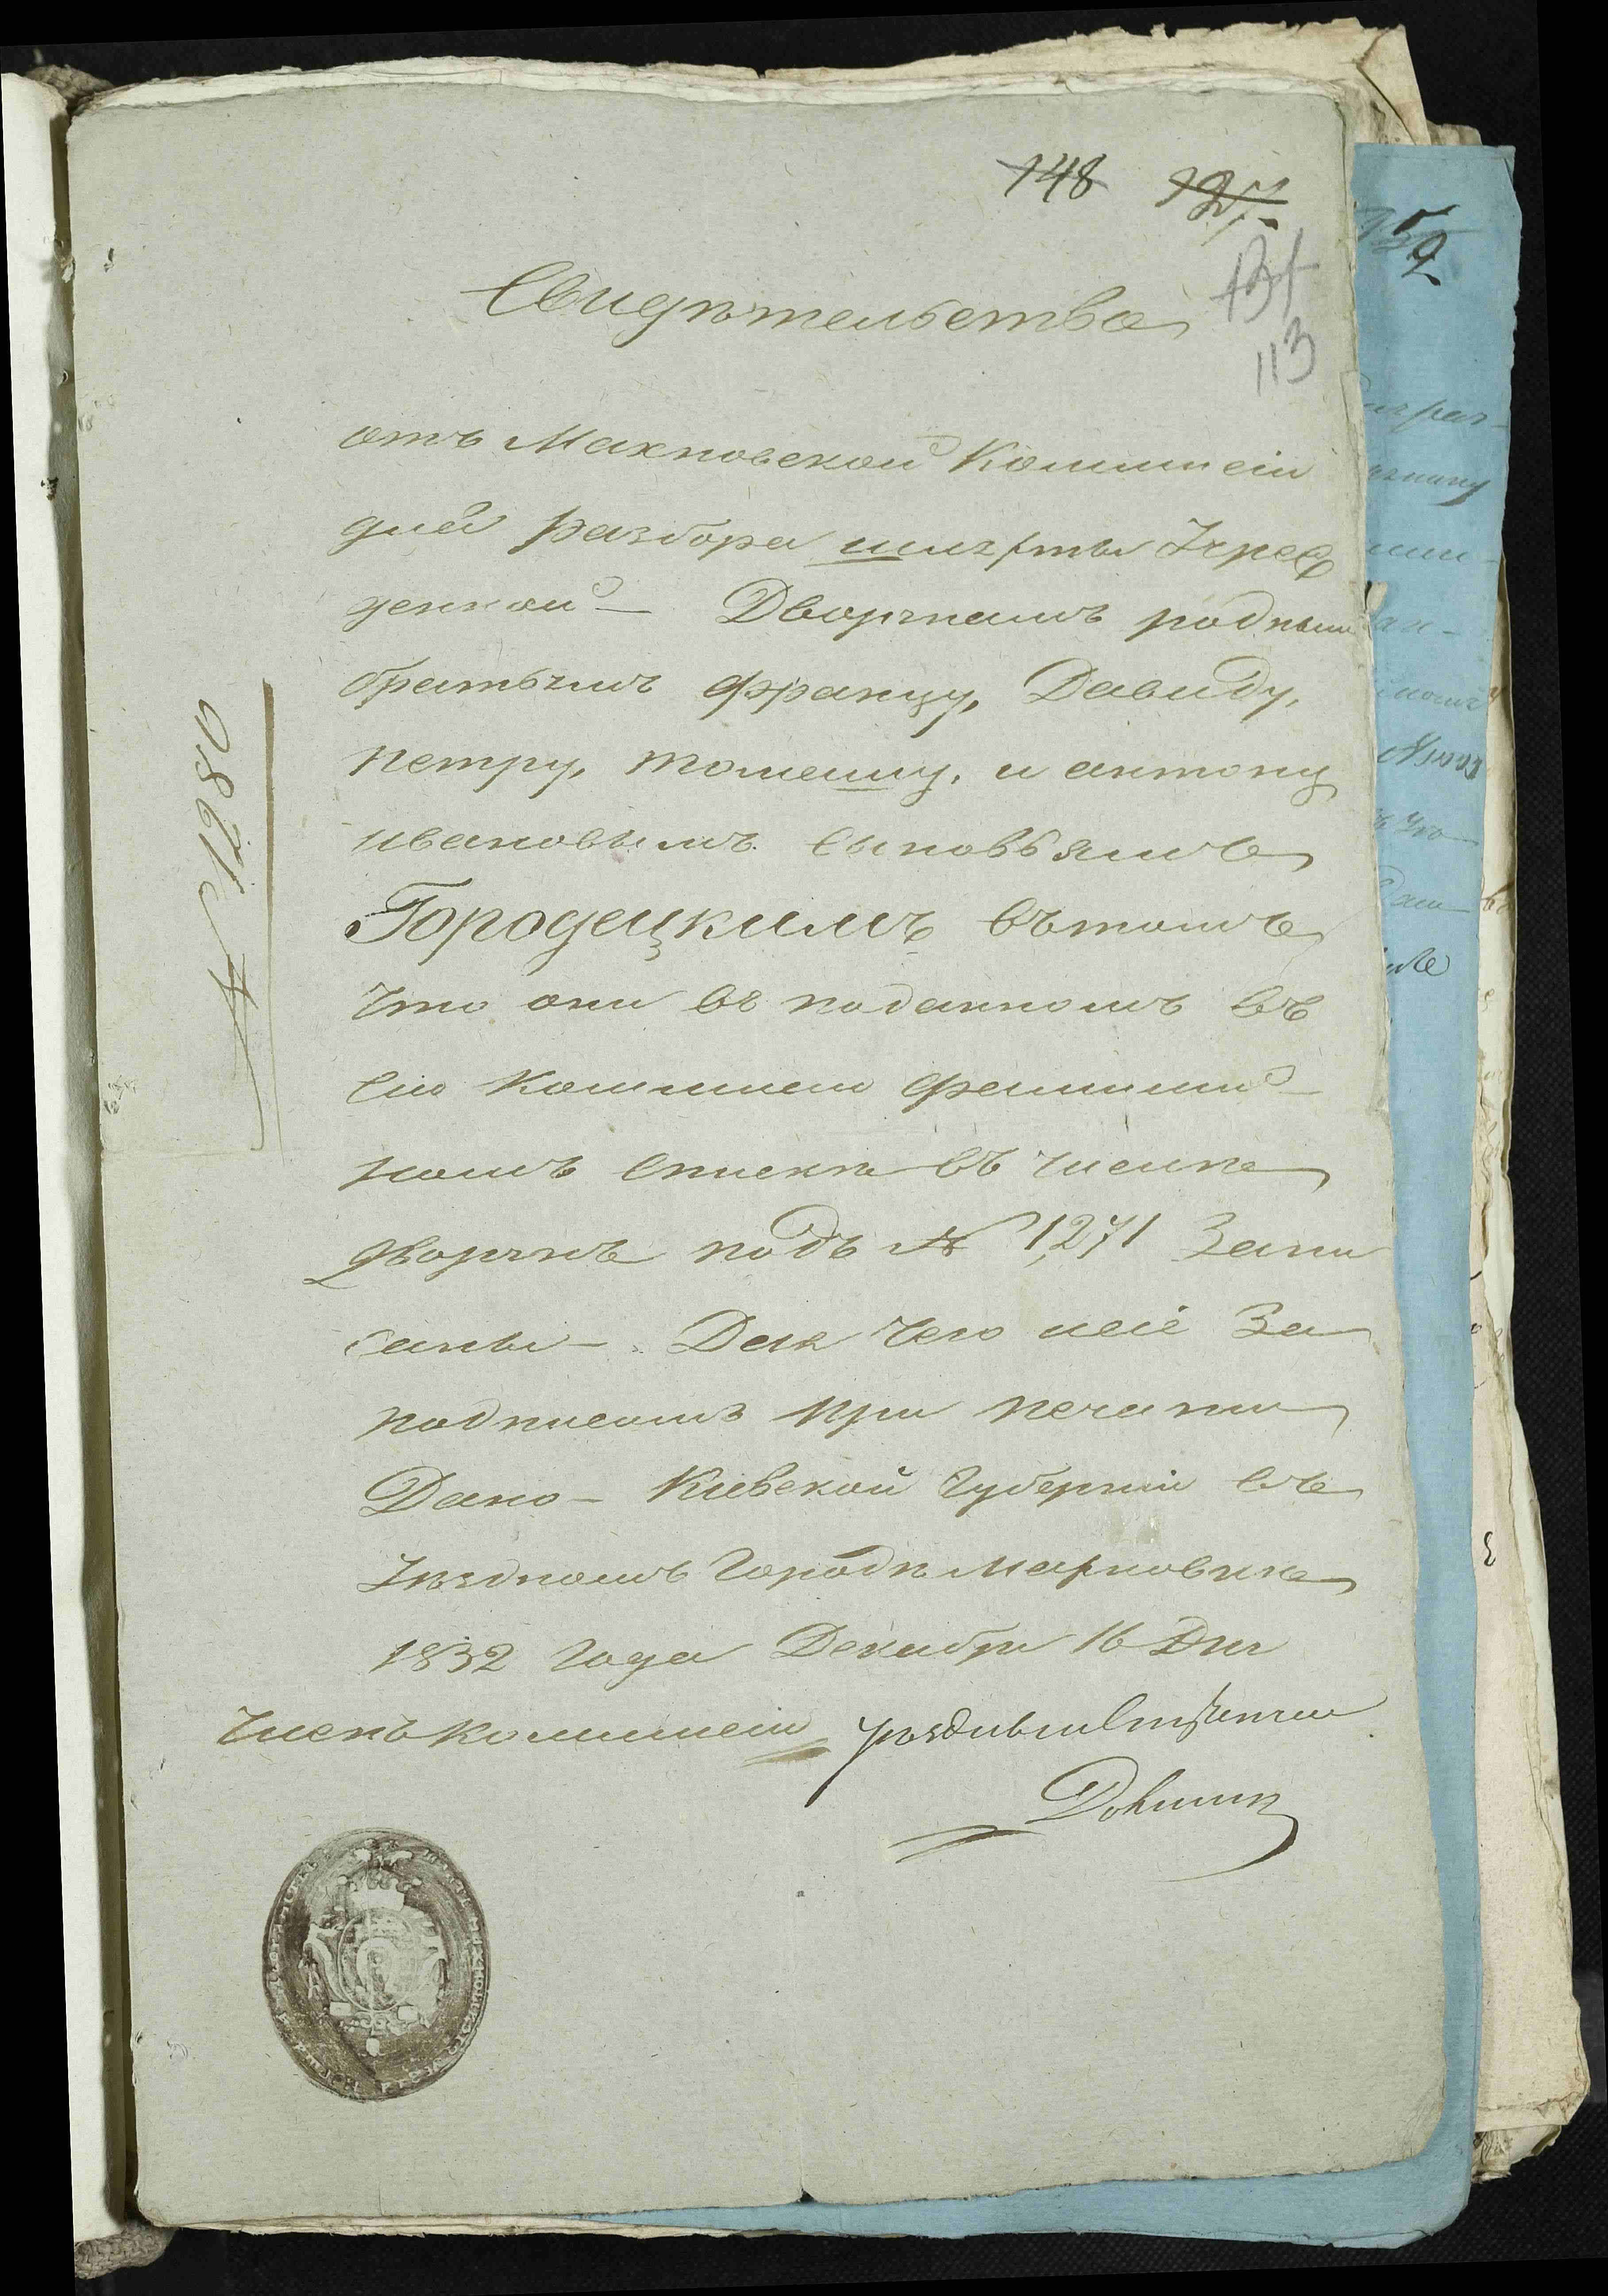 148 127
131
113
Свидѣтельство
отъ Махновской Коммисіи
для разбора шляхты Учреж
денной — Дворянамъ роднымъ
братьямъ Францу, Давиду,
петру, томашу, и антону
ивановымъ сыновьямъ
Городецкимъ вътомъ
что они въ поданномъ въ
сію Коммисію фамилій—
номъ спискѣ въ числѣ
дворянъ подъ № 1,271 Запи
саны — Для чего и сіе За
подписомъ при печати
Дано — Кіевской Губерніи въ
Уѣздномъ городѣ Махновкѣ
1832 года Декабря 16 Дня
Членъ коммисіи
№ 1280